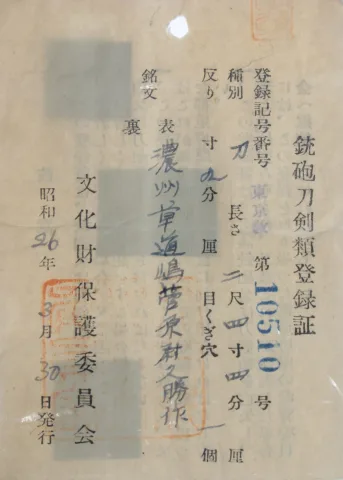 銃砲刀剣類登録証
登録記号番号 東京 第10510号
種別 刀 長さ 二尺四寸四分 厘
反り 寸九分 厘 目くぎ穴 一個
銘文 表 濃州草道嶋菅原村又勝作
裏
文化財保護委員会
昭和26年3月30日発行